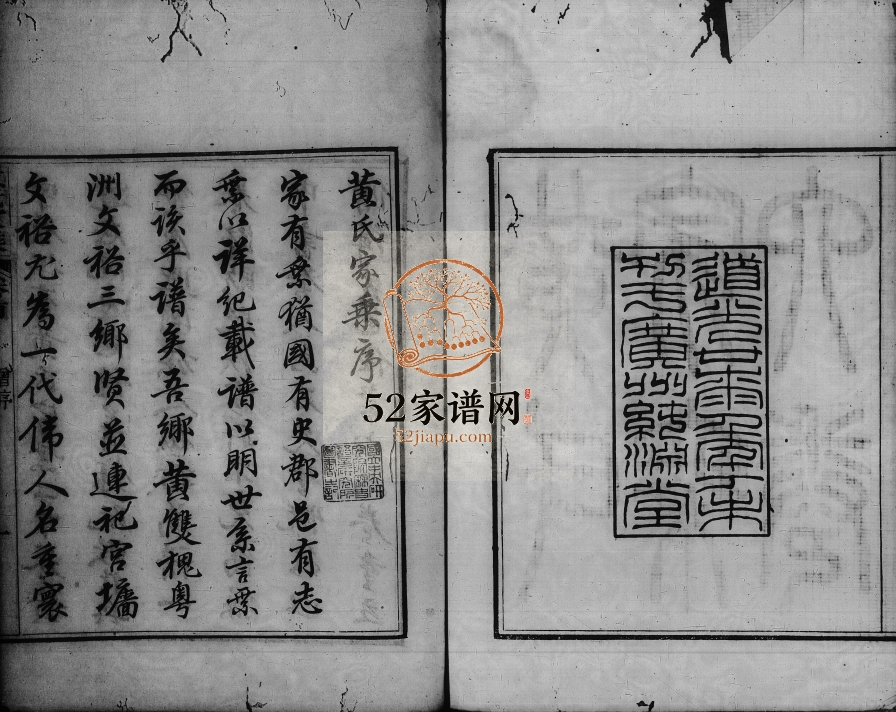 道光廿七年丁未
刊于廣州純淵堂
黄氏家乘序
家有乘猶國有史郡邑有志
乘以詳紀載譜以明世系言乘
而該乎譜矣吾鄉黄雙槐粤
洲文裕三鄉賢並連祀宮墻
文裕尤為一代偉人名重寰
52家谱网
52jiapu.com